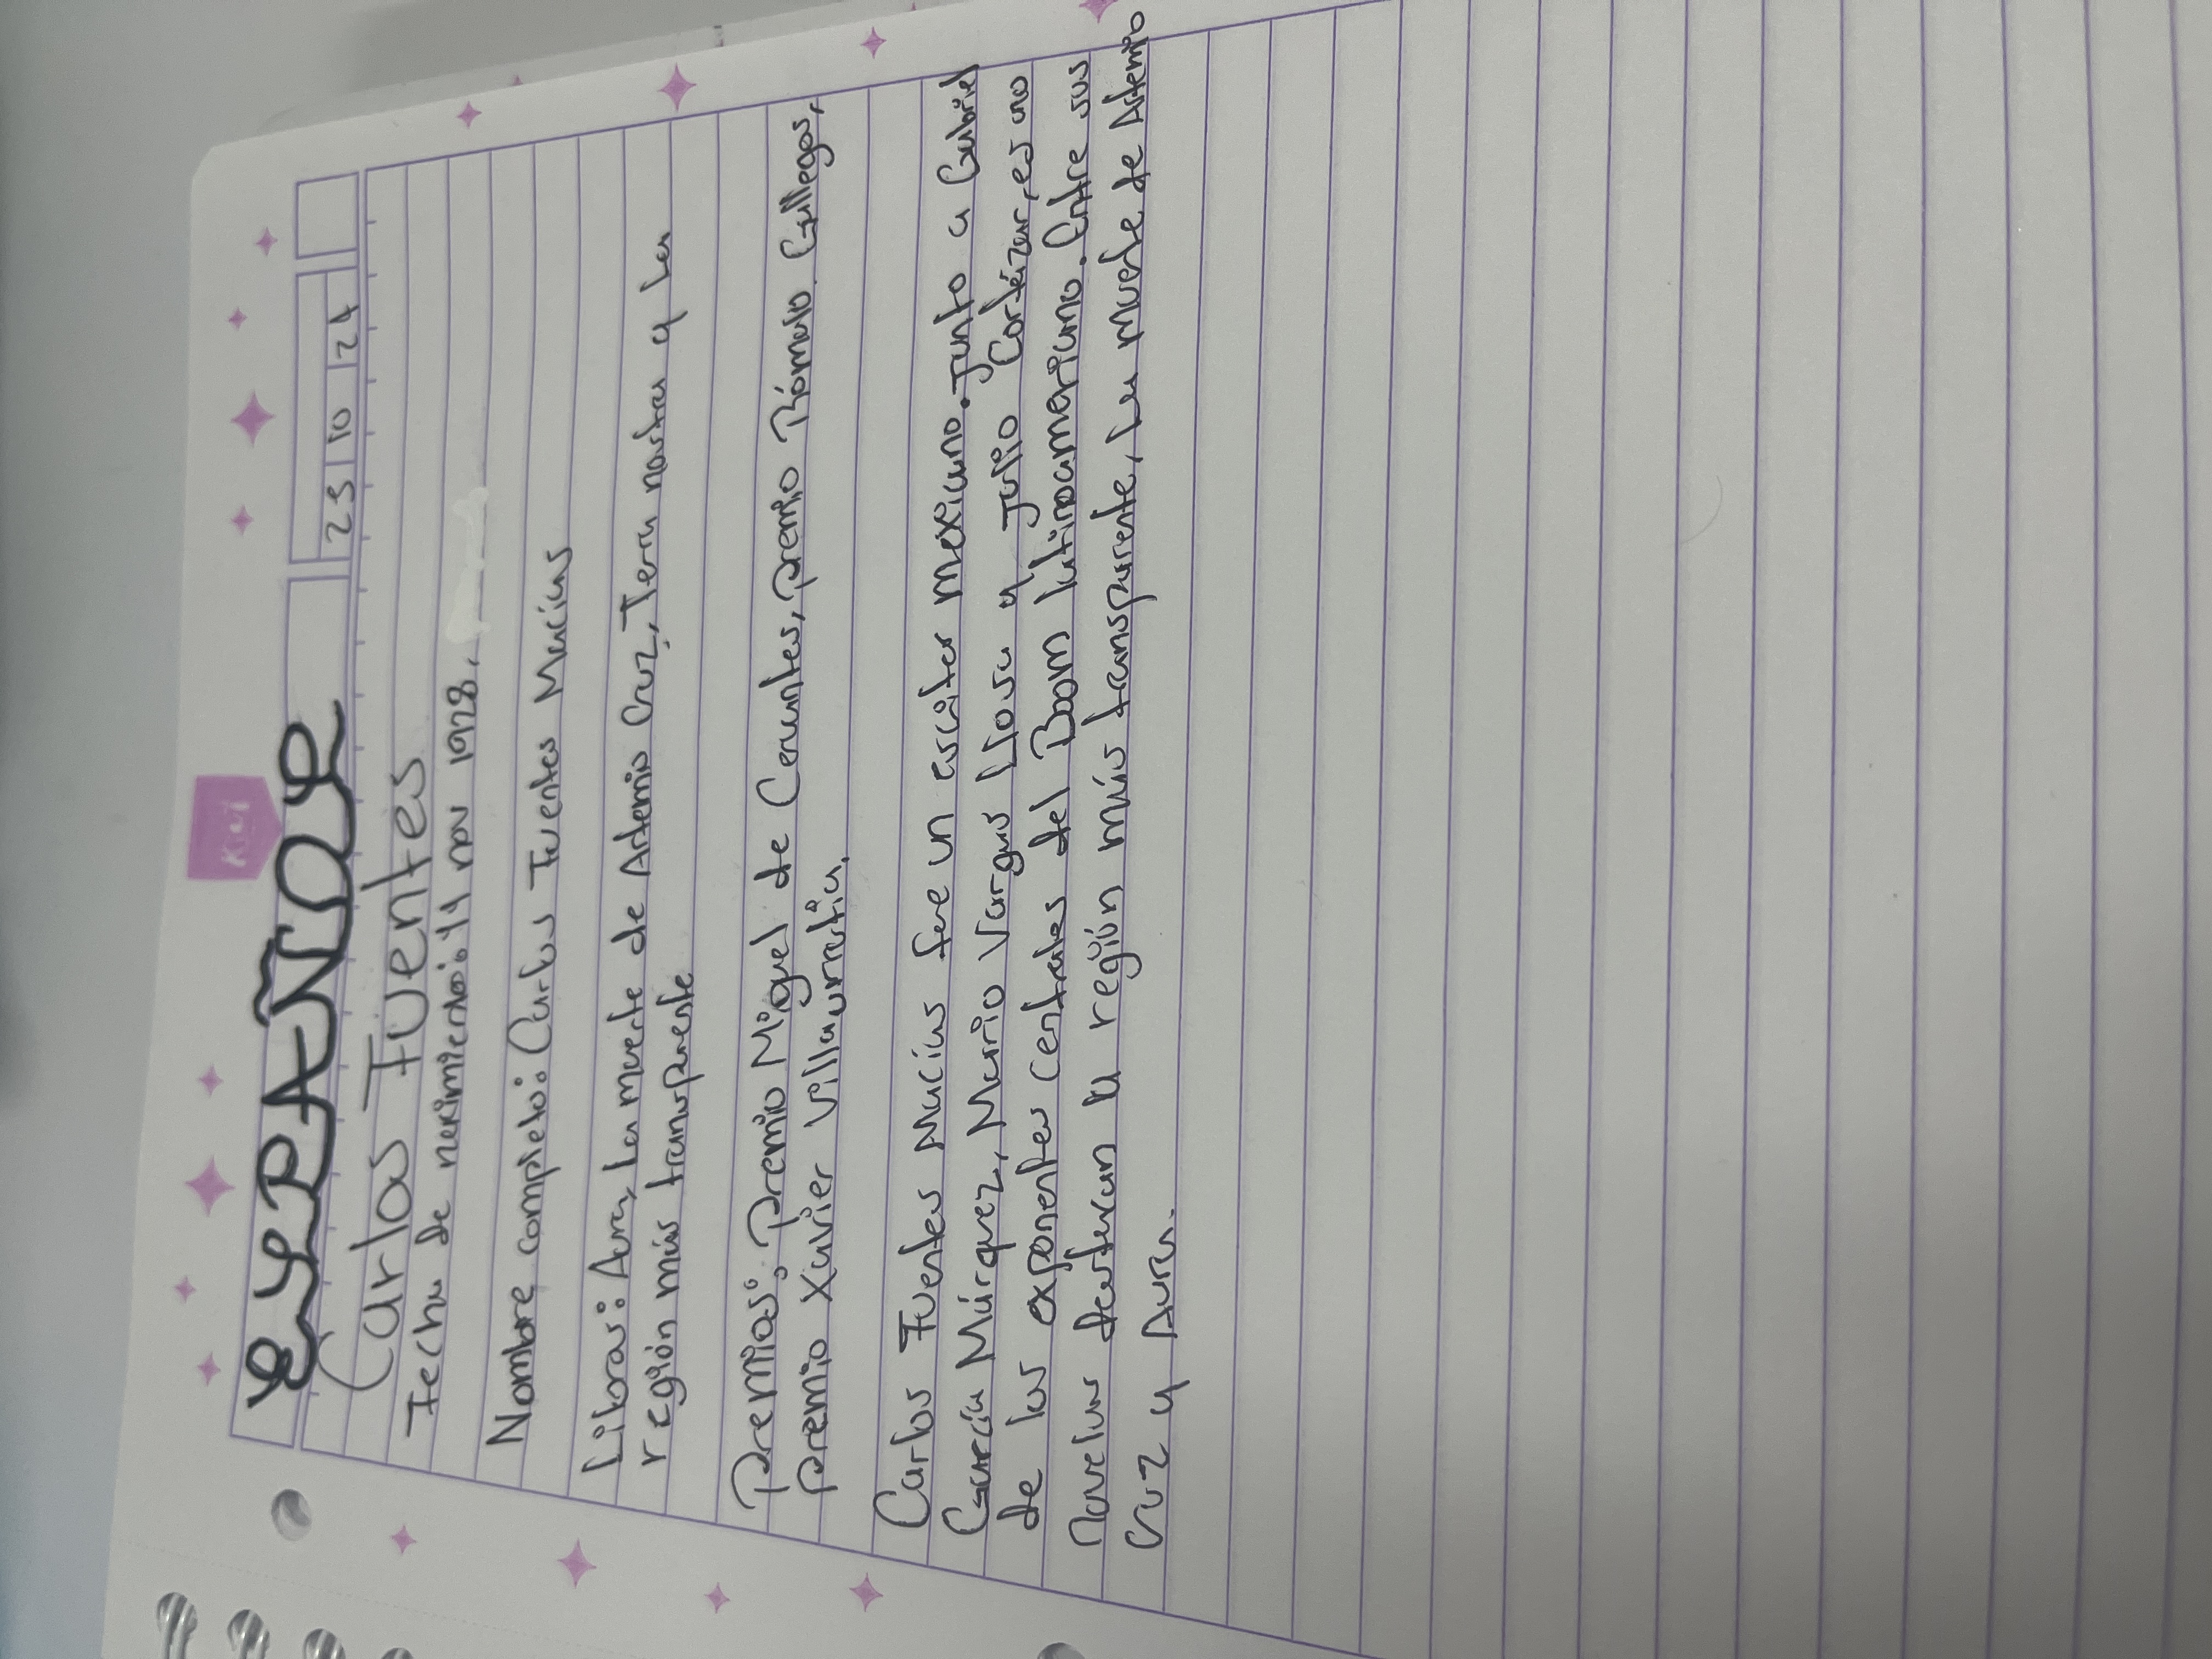 ESPAÑOL
23 10 24
Kiut
Carlos Fuentes
Fecha de nacimiento: 11 nov 1928.
Nombre completo: Carlos Fuentes Macías
Libros: Aura, La muerte de Artemio Cruz, Terra nostra y La
región más transparente
Premios: Premio Miguel de Cervantes, premio Rómulo Gallegos,
premio Xavier Villaurrutia.
Carlos Fuentes Macías fue un escritor mexicano. Junto a Gabriel
García Márquez, Mario Vargas Llosa y Julio Cortázar, es uno
de los exponentes centrales del Boom latinoamericano. Entre sus
novelas destacan la región más transparente, La muerte de Artemio
Cruz y Aura.